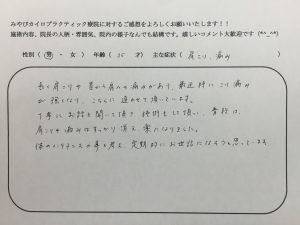 みやびカイロプラクティック療院に対するご感想をよろしくお願いいたします!!
施術内容、院長の人柄・雰囲気、院内の様子なんでも結構です。嬉しいコメント大歓迎です(*^_^*)
性別(男・女) 年齢(35才) 主な症状(肩こり、痛み)
長く肩こりや首から肩への痛みがあり、最近特にこり痛み
が強くなり、こちらに通わせて頂いています。
丁寧にお話も聞いて頂き施術をして頂い、普段は、
肩こりや痛みはすっかり消え、楽になりました。
体のメンテナンスの事も考え、定期的にお世話になろうと思っています。